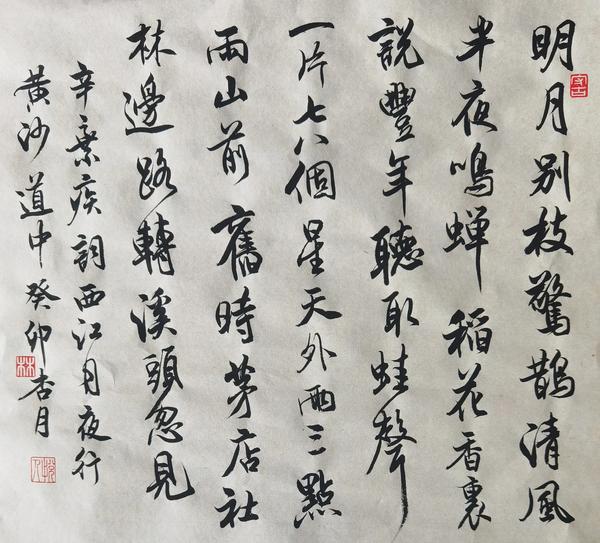 明月别枝驚鵲清風
半夜鳴蝉稻花香裏
説豐年聽取蛙聲
一片七八個星天外兩三點
雨山前舊時茅店社
林邊路轉溪頭忽見
辛棄疾詞西江月夜行
黄沙道中癸卯杏月
林